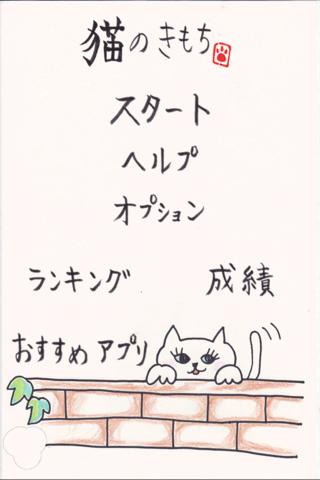 猫のきもち
スタート
ヘルプ
オプション
ランキング 成績
おすすめアプリ